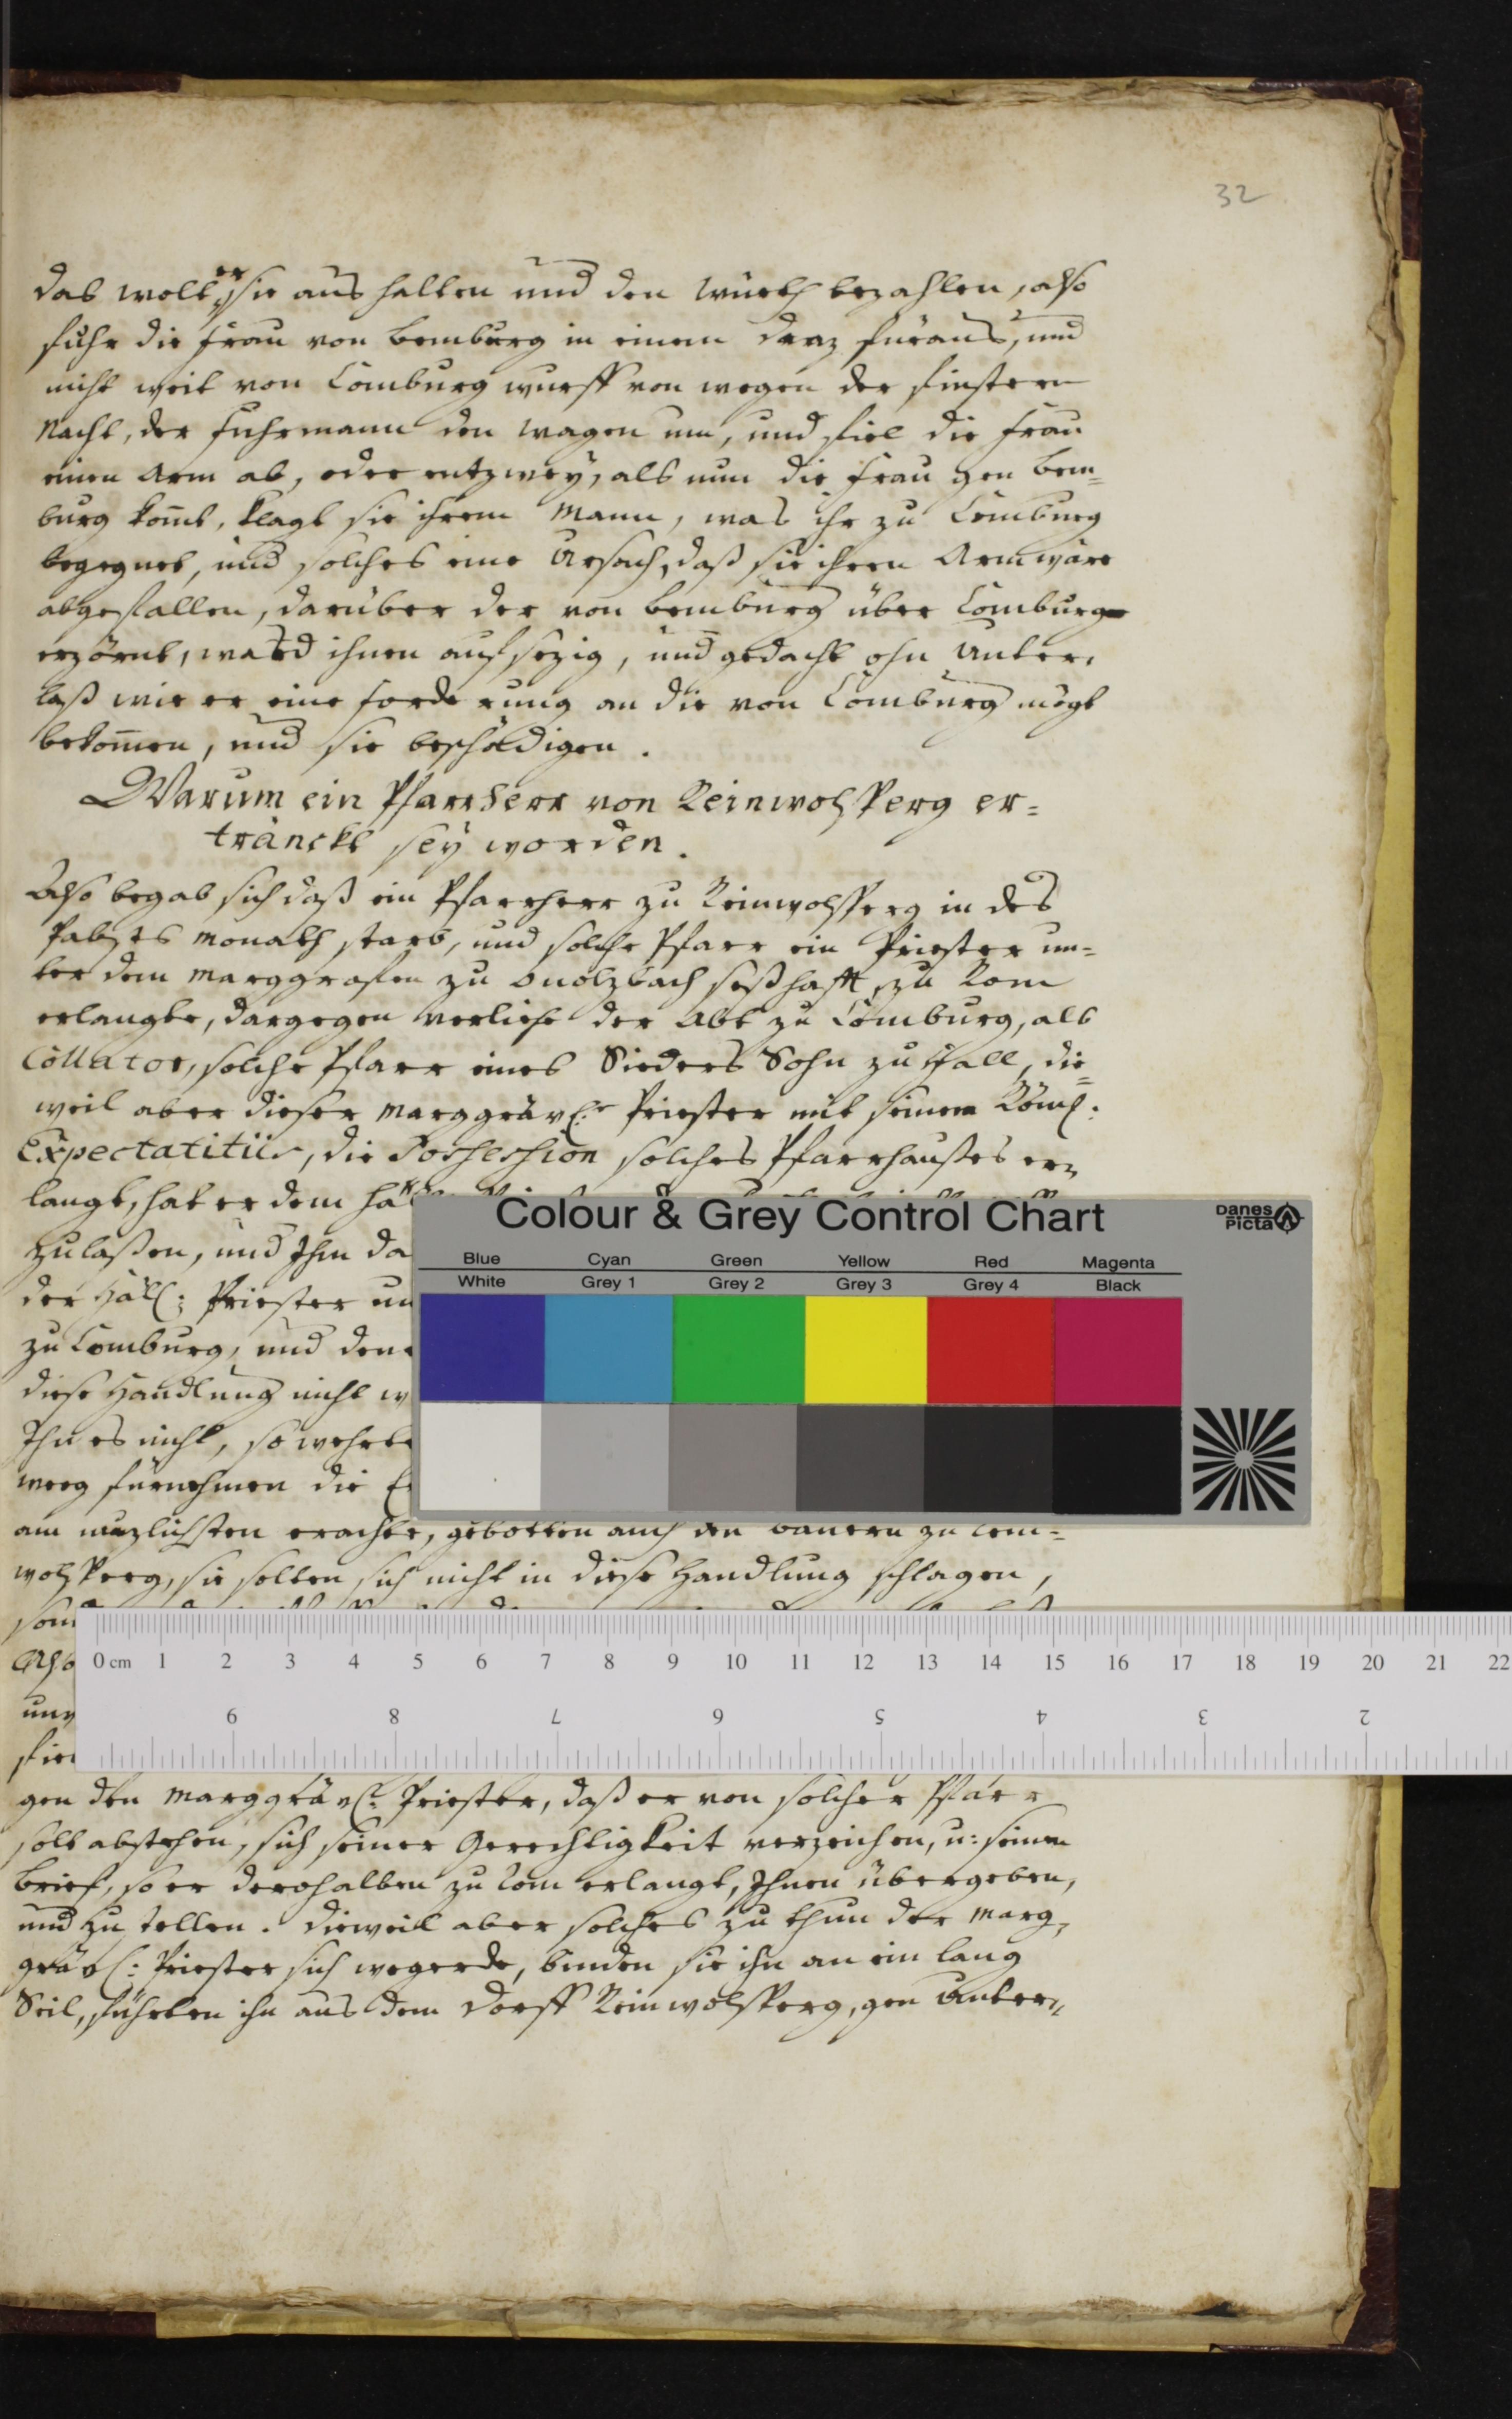 32
das wolt er sie aus halten und den Würth bezahlen, also
fuhr die Frau von Bemburg in einem draz füraus, und
nicht weit von Comburg wurff von wegen der finstern
Nacht, der Fuhrmann den Wagen um, und fiel die Frau
einen Arm ab, oder entzwey, als nun die Frau gen Bem=
burg kom̄t, klagt sie ihrem Mann, was ihr zu Comburg
begegnet, und solches eine Ursach, daß sie ihren Arm wäre
abgefallen, darüber der von Bemburg über Comburg
erzörnt, ward ihnen aufsezig, und gedacht ohn Unter,
laß wie er eine forderung an die von Comburg mögt
bekom̄en, und sie beschädigen.
Warum ein Pfarrherr von Reinwolsperg er=
tränckt sey worden.
Also begab sich daß ein Pfarrherr zu Reinwolsperg in des
Pabsts Monath starb, und solche Pfarr ein Priester un=
ter dem Marggrafen zu Onolzbach seßhafft, zu Rom
erlangte, dargegen verliehe der Abt zu Comburg, als
Collator, solche Pfarr eines Sieders Sohn zu Hall, die=
weil aber dieser Marggräv: Priester mit seinem Römis:
Expectatitiis, die Possession solches Pfarrhaußes er=
langt, hat er dem
zulaßen, und Ihm da
der Häl: Priester un
zu Comburg, und den
diese Handlung nicht w
Ihn es nicht, so wehrt
weeg fürnehmen die
am nuzlichsten erachte, gebotten auch den Bauern zu Rein=
wolsperg, sie solten sich nicht in diese Handlung schlagen,
son
Also
un
fie
gen den Marggräv: Priester, daß er von solcher Pfarr
solt abstehen, sich seiner Gerechtigkeit verzeichen, u: seinen
Brief, so er derohalben zu Rom erlangt, Ihnen übergeben,
und zustellen. Dieweil aber solches zu thun der Marg,
gräv: Priester sich wegerde, binden sie ihn an ein lang
Seil, führten ihn aus dem Dorff Reinwolsperg, gen Unter=
Colour & Grey Control Chart
Danes Picta
Blue Cyan Green Yellow Red Magenta
White Grey 1 Grey 2 Grey 3 Grey 4 Black
0 cm 1 2 3 4 5 6 7 8 9 10 11 12 13 14 15 16 17 18 19 20 21 22
9 8 7 6 5 4 3 2